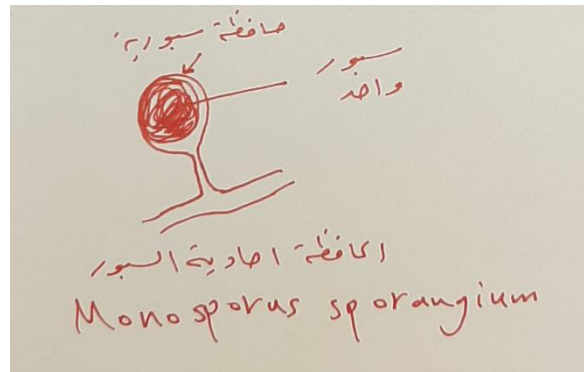 حافظة سبورية
سبور
واحد
الحافظة احادية السبور
Monosporus sporangium